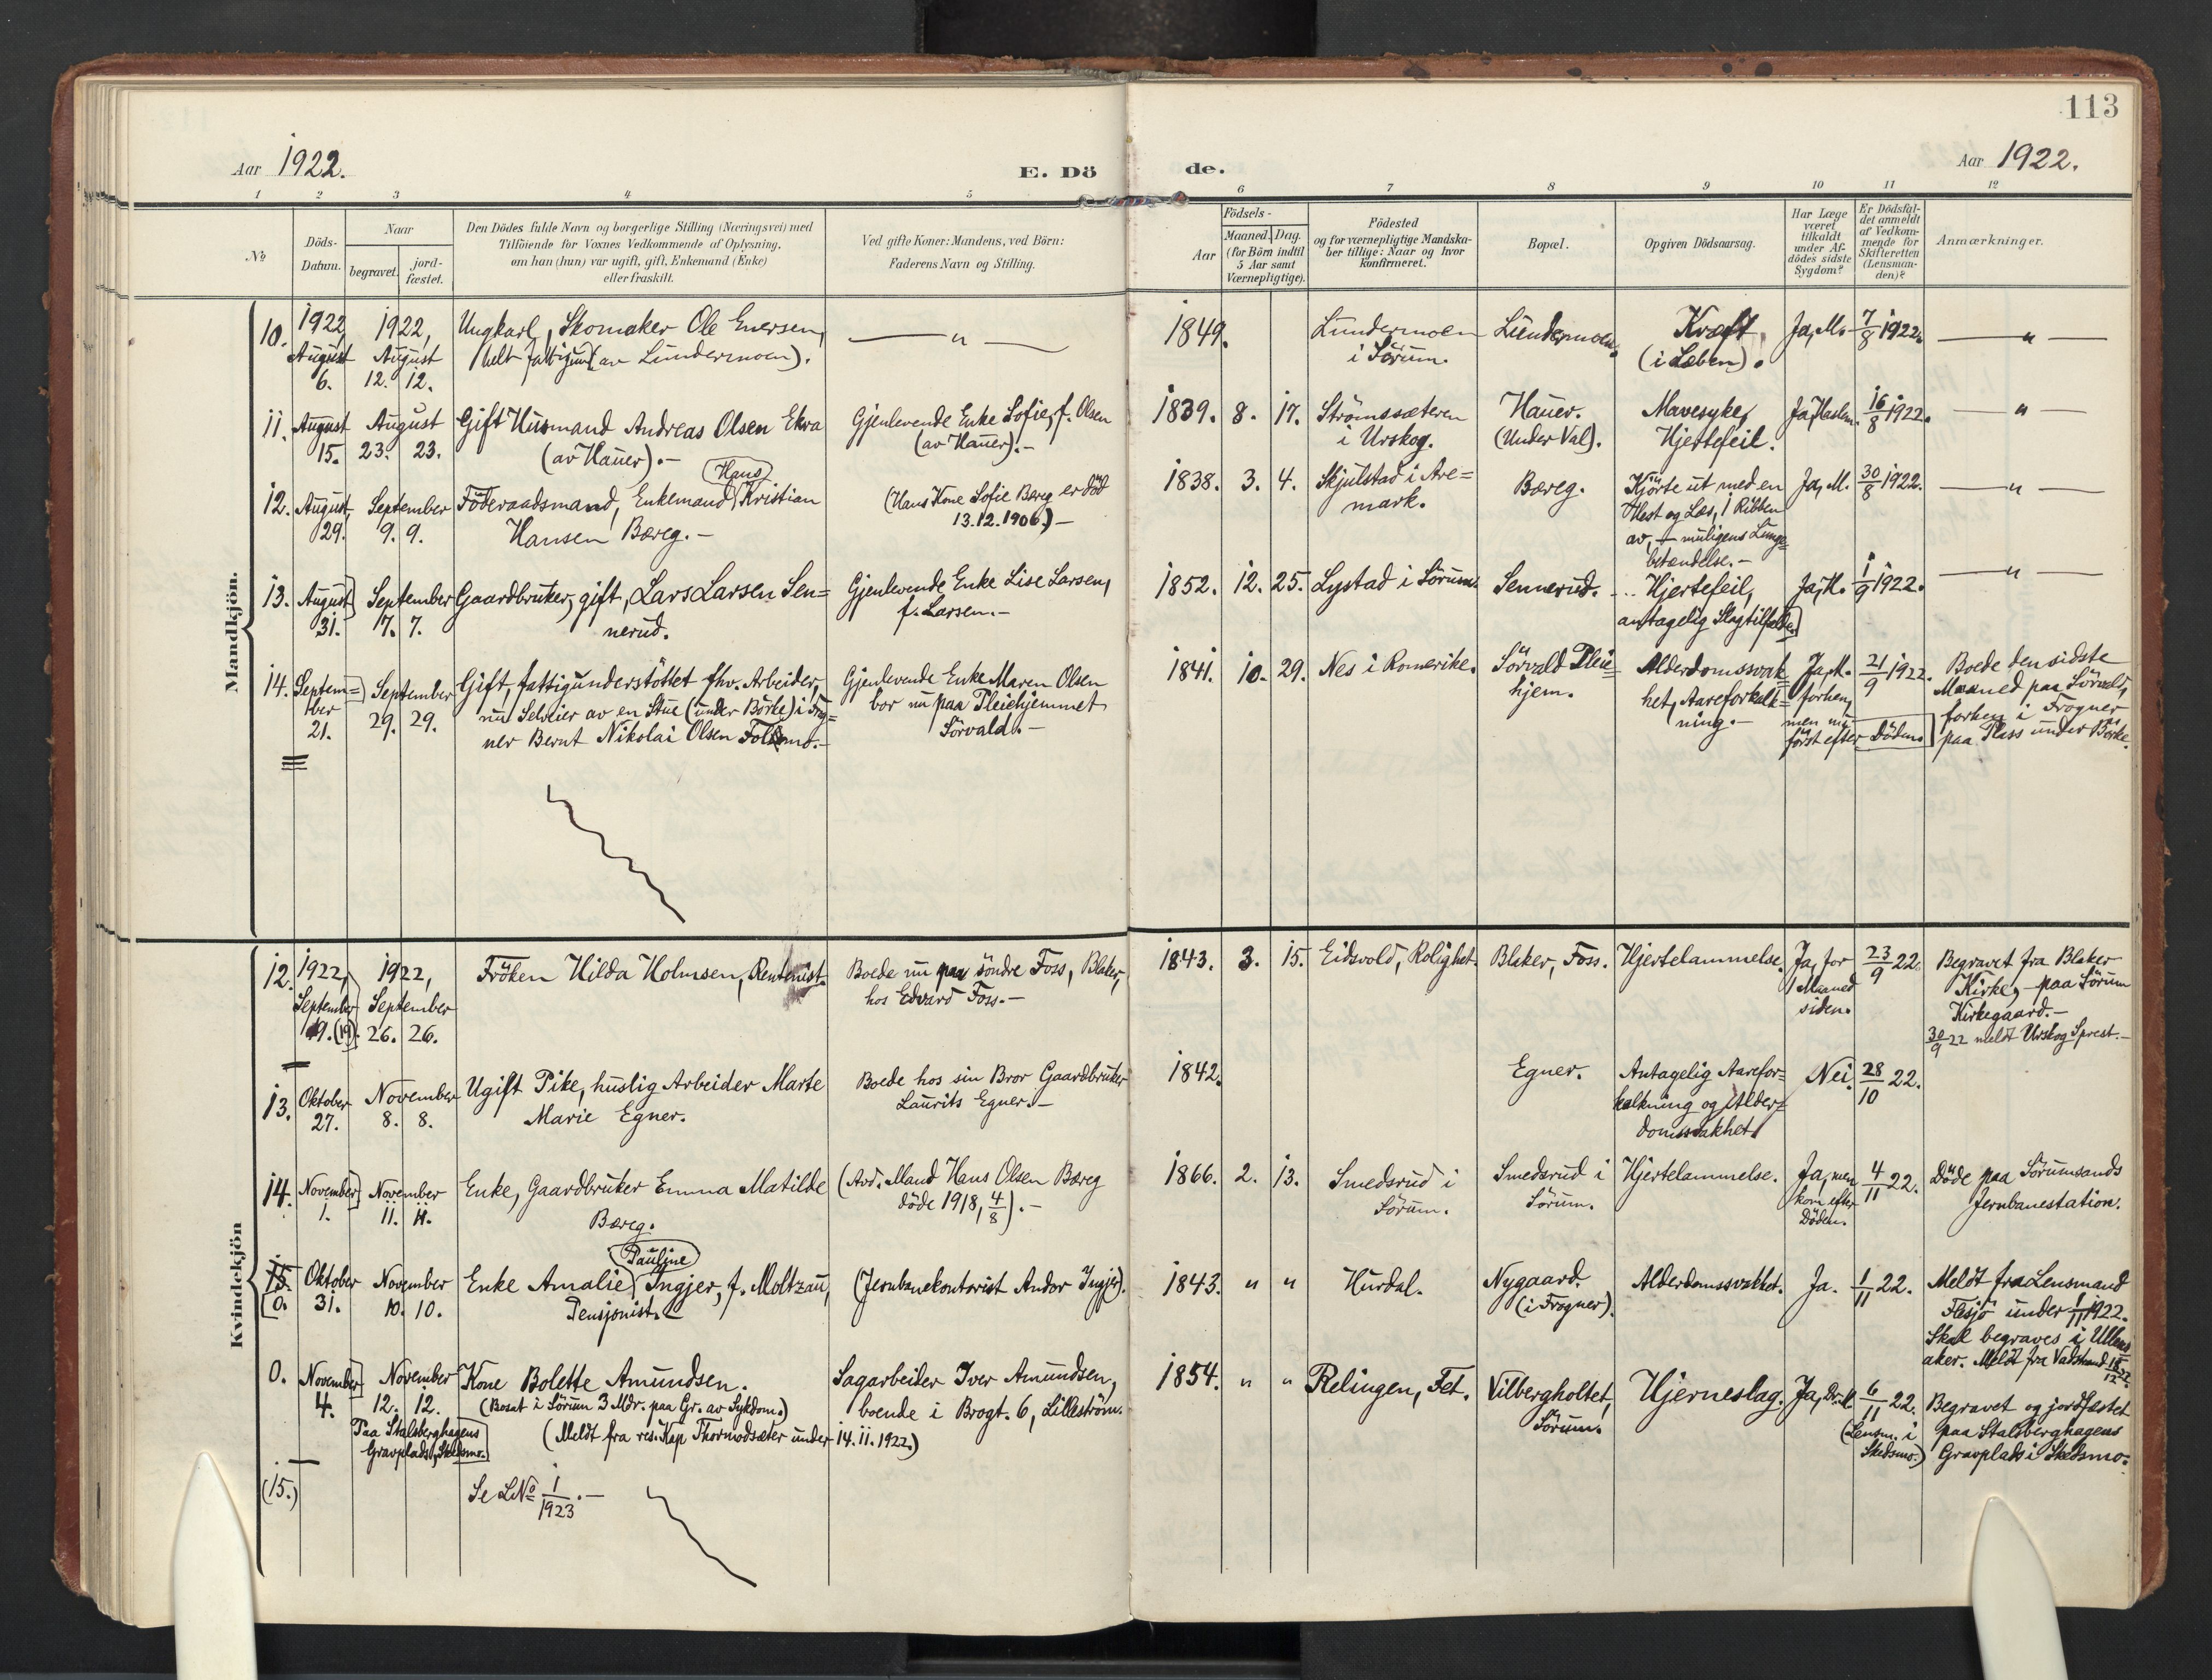 113
Aar 1922.
E. Dö de.
Aar 1922.
1 2 3 4 5 6 7 8 9 10 11 12
No
Döds-
Datum.
Naar
begravet.
jord-
fæstet.
Den Dödes fulde Navn og borgerlige Stilling (Næringsvei) med
Tilföiende for Voxnes Vedkommende af Oplysning,
om han (hun) var ugift, gift, Enkemand (Enke)
eller fraskilt.
Ved gifte Koner: Mandens, ved Börn:
Faderens Navn og Stilling.
Födsels-
Aar
Maaned. Dag.
(for Börn indtil
5 Aar samt
Værnepligtige).
Födested
og for værnepligtige Mandska-
ber tillige: Naar og hvor
konfirmeret.
Bopæl.
Opgiven Dödsaarsag.
Har Læge
været
tilkaldt
under Af-
dödes sidste
Sygdom?
Er Dödsfal-
det anmeldt
af Vedkom-
mende for
Skifteretten
(Lensman-
den)?
Anmærkninger.
Mandkjön.
10.
1922,
August
6.
1922,
August
12. 12.
Ungkarl, Skomaker Ole Enersen,
helt (av Lundermoen).
— " —
1849.
Lundermoen
i Sörum.
Lundermoen.
Kræft
(i Læben).
Ja, M.
7/8 1922.
— " —
11.
August
15.
August
23. 23.
Gift Husmand Andreas Olsen Ekra
(av Hauer).-
Gjenlevende Enke Sofie, f. Olsen
(av Hauer).-
1839. 8. 17.
Strömssæteren
i Urskog.
Hauer.
(Under Val).
Mavesyke,
Hjertefeil.
Ja, Haslem.
16/8 1922.
— " —
12.
August
29.
September
9. 9.
Föderaadsmand, Enkemand Hans Kristian
Hansen Bæreg.-
(Hans Kone Sofie Bæreg er död
13.12.1906.)-
1838. 3. 4.
Skjulstad i Are=
mark.
Bæreg.
Kjörte ut med en
Hest og Læs, 1 Ribben
av, - muligens Lunge=
betændelse.-
Ja, M.
30/8 1922.
— " —
13.
August
31.
September
7. 7.
Gaardbruker, gift, Lars Larsen Sen=
nerud.
Gjenlevende Enke Lise Larsen,
f. Larsen.-
1852. 12. 25.
Lystad i Sörum.
Sennerud.
Hjertefeil,
antagelig Slagtilfælde
Ja, M.
1/9 1922.
— " —
14.
Septem=
ber
21.
September
29. 29.
Gift, fattigunderstöttet fhv. Arbeider,
nu Selveier av en Stue (under Börke) i Frog=
ner Bernt Nikolai Olsen
Gjenlevende Enke Maren Olsen
bor nu paa Pleiehjemmet
Sörvald.-
1841. 10. 29.
Nes i Romerike.
Sörvald Pleie=
hjem.
Alderdomssvak=
het, Aareforkalk=
ning.-
Ja, M.
forhen,
men nu
först efter Döden.
21/9 1922.
Boede den sidste
Maaned paa Sörvald,
forhen i Frogner
paa Plass under Börke.
Kvindekjön
12.
1922,
September
19. (19).
1922,
September
26. 26.
Fröken Hilda Holmsen, Rentenist.
Boede nu paa söndre Foss, Blaker,
hos Edvard Foss.-
1843. 3. 15.
Eidsvold, Rolighet.
Blaker, Foss.
Hjertelammelse.
Ja, for
1 Maaned
siden.
23/9 22.
Begravet fra Blaker
Kirke, - paa Sörum
Kirkegaard.-
30/9 22 meldt Urskog Sprest.-
13.
Oktober
27.
November
8. 8.
Ugift Pike, huslig Arbeider Marte
Marie Egner.
Boede hos sin Bror Gaardbruker
Laurits Egner.-
1842.
Egner.
Antagelig Aarefor=
kalkning og Alder=
domssvakhet.
Nei.
28/10 22.
14.
November
1.
November
11. 11.
Enke, Gaardbruker Emma Matilde
Bæreg.
(Avd. Mand Hans Olsen Bæreg
döde 1918, 4/8).-
1866. 2. 13.
Smedsrud i
Sörum.
Smedsrud i
Sörum.
Hjertelammelse.
Ja, men
kom efter
Döden.
4/11 22.
Döde paa Sörumsands
Jernbanestation.
15.
0.
Oktober
31.
November
10. 10.
Enke Amalie Pauline Ingjer, f. Moltzau,
Pensjonist.
(Jernbanekontorist Andor Ingjer).
1843. " "
Hurdal.
Nygaard.
(i Frogner).
Alderdomssvakhet.
Ja.
1/11 22.
Meldt fra Lensmand
under 1/11 1922.
Skal begraves i Ullens
aker. Meldt fra Vadstrand
0.
November
4.
November
12. 12.
Paa Stalsberghagens
Gravplads, Skedsmo.
Kone Bolette Amundsen.
(Bosat i Sörum 3 Mdr. paa Gr. av Sykdom.)
(Meldt fra res. Kap Thormodsæter under 14.11.1922.)
Sagarbeider Iver Amundsen,
boende i Brogt. 6, Lilleström.
1854. " "
Relingen, Fet.
Vilbergholtet,
Sörum.
Hjerneslag.
Ja, Dr. M.
6/11 22.
(Lensm. i
Skedsmo.)
Begravet og jordfæstet
paa Stalsberghagens
Gravplads i Skedsmo.
(15.)
Se LNo 1/1923.-